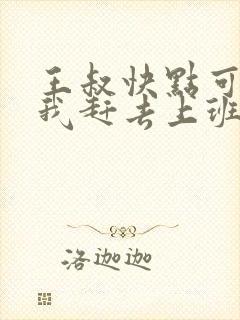 王叔快點可
我赶去上班
洛迦迦